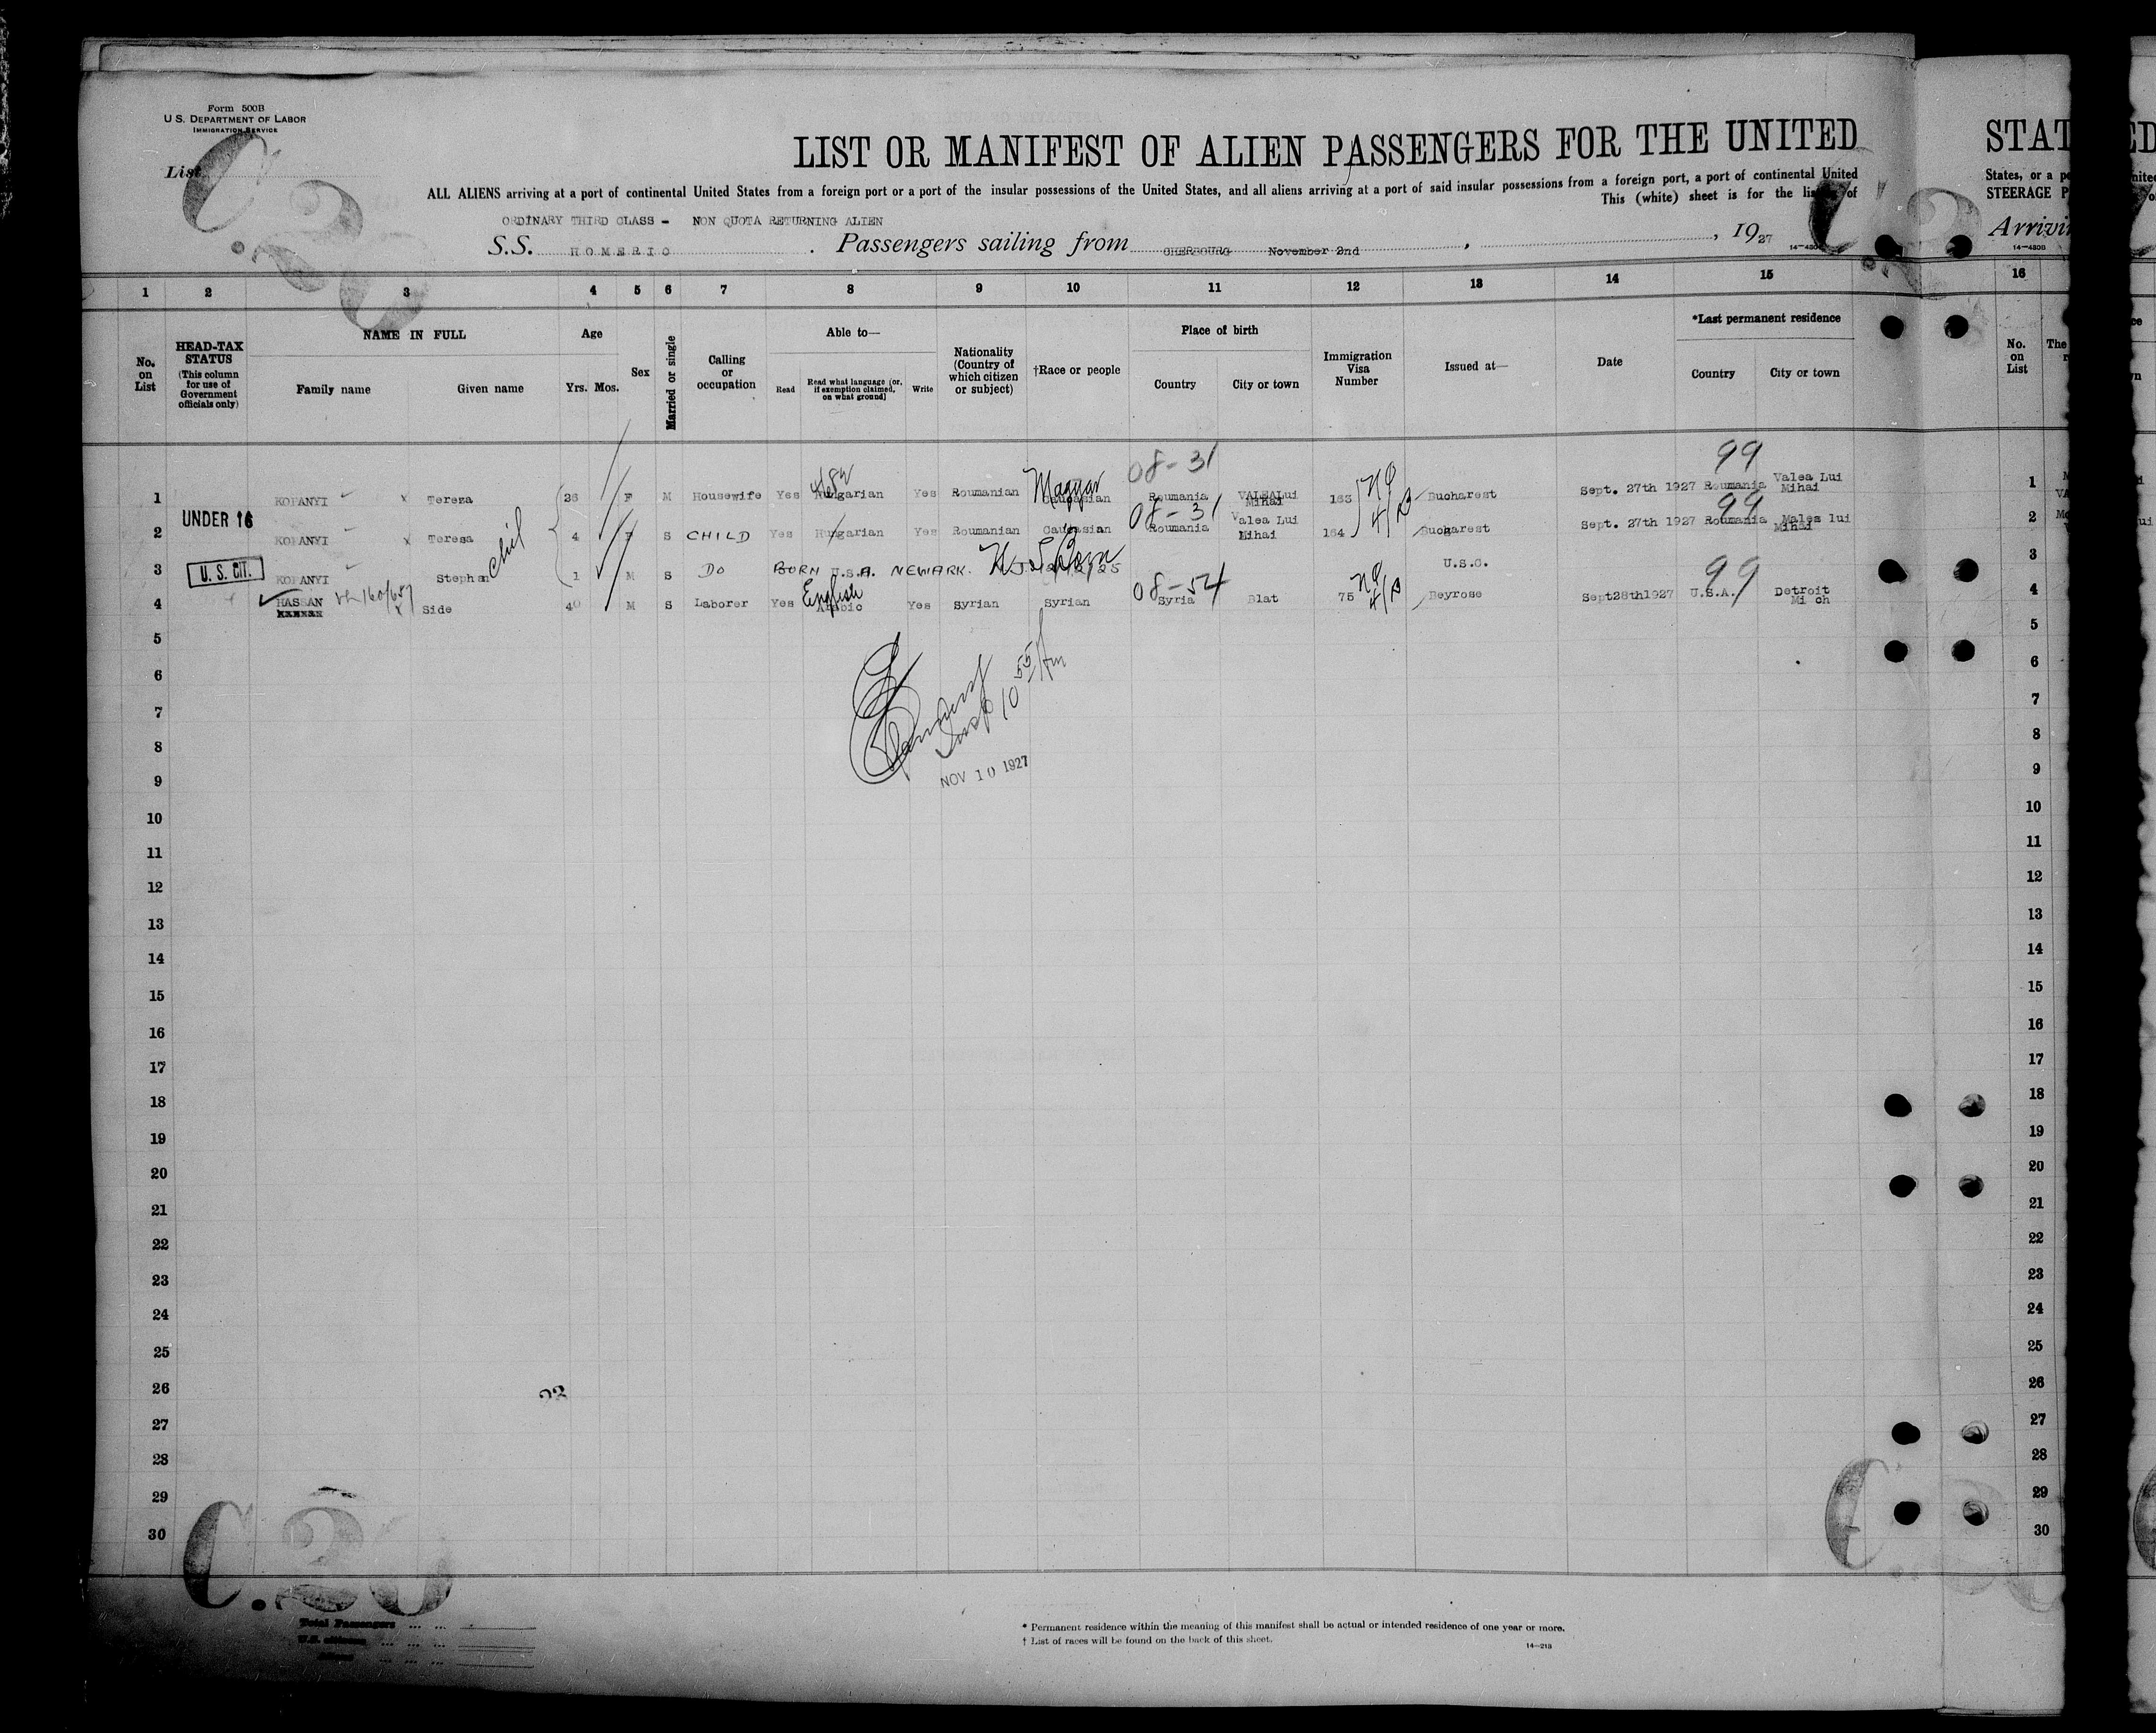 Form 500B
U. S. DEPARTMENT OF LABOR
IMMIGRATION SERVICE
List
LIST OR MANIFEST OF ALIEN PASSENGERS FOR THE UNITED
STAT
ALL ALIENS arriving at a port of continental United States from a foreign port or a port of the insular possessions of the United States, and all aliens arriving at a port of said insular possessions from a foreign port, a port of continental United
States, or a
This (white) sheet is for the listing of
STEERAGE P
ORDINARY THIRD CLASS - NON QUOTA RETURNING ALIEN
S.S. HOMERIC. Passengers sailing from CHERBOURG November 2nd, , 1927
Arrivi
14-430B
1 2 3 4 5 6 7 8 9 10 11 12 13 14 15 16
No. on List
HEAD-TAX STATUS (This column for use of Government officials only)
NAME IN FULL
Family name Given name
Age
Yrs. Mos.
Sex
Married or single
Calling or occupation
Able to—
Read
Read what language [or, if exemption claimed, on what ground]
Write
Nationality (Country of which citizen or subject)
†Race or people
Place of birth
Country City or town
Immigration Visa Number
Issued at—
Date
*Last permanent residence
Country City or town
No. on List
The
08-31 99
1 KOPANYI x Tereza 26 F M Housewife Yes Hungarian Yes Roumanian Magyar Caucasian Roumania Valea Lui Mihai 163 Bucharest Sept. 27th 1927 Roumania Valea Lui Mihai 1
UNDER 16
08-31 99
2 KOPANYI x Teresa child 4 F S CHILD Yes Hungarian Yes Roumanian Caucasian Roumania Valea Lui Mihai 164 Bucharest Sept. 27th 1927 Roumania Malea lui Mihai 2
U. S. CIT.
3 KOPANYI Stephan 1 M S DO BORN U.S.A. NEWARK. N.J. U.S. Born U.S.C. 3
08-54 99
4 HASSAN x Side 40 M S Laborer Yes English Arabic Yes Syrian Syrian Syria Blat 75 Beyrose Sept28th1927 U.S.A. Detroit Mich 4
5 5
6 6
7 7
8 8
Insp 10 55 Am
NOV 10 1927
9 9
10 10
11 11
12 12
13 13
14 14
15 15
16 16
17 17
18 18
19 19
20 20
21 21
22 22
23 23
24 24
25 25
26 26
27 27
28 28
29 29
30 30
C.20
Total Passengers
U.S. citizens
Aliens
* Permanent residence within the meaning of this manifest shall be actual or intended residence of one year or more.
† List of races will be found on the back of this sheet.
14-213